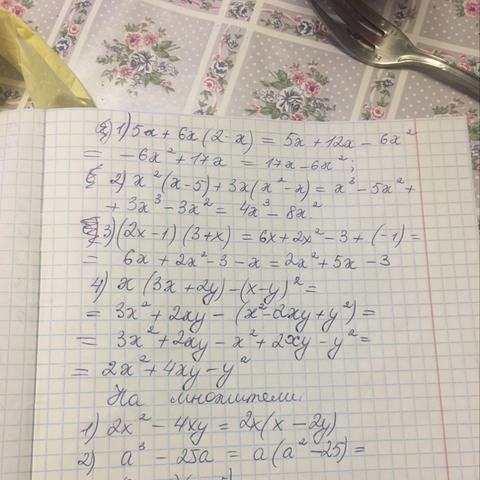 1) 5x + 6x(2-x) = 5x + 12x - 6x²
= -6x² + 17x = 17x - 6x²;
2) x²(x-5) + 3x(x²-x) = x³ - 5x² +
+ 3x³ - 3x² = 4x³ - 8x²
3) (2x-1)(3+x) = 6x + 2x² - 3 + (-1) =
= 6x + 2x² - 3 - x = 2x² + 5x - 3
4) x(3x + 2y) - (x-y)² =
= 3x² + 2xy - (x² - 2xy + y²) =
= 3x² + 2xy - x² + 2xy - y² =
= 2x² + 4xy - y²
На множители
1) 2x² - 4xy = 2x(x - 2y)
2) a³ - 25a = a(a² - 25) =